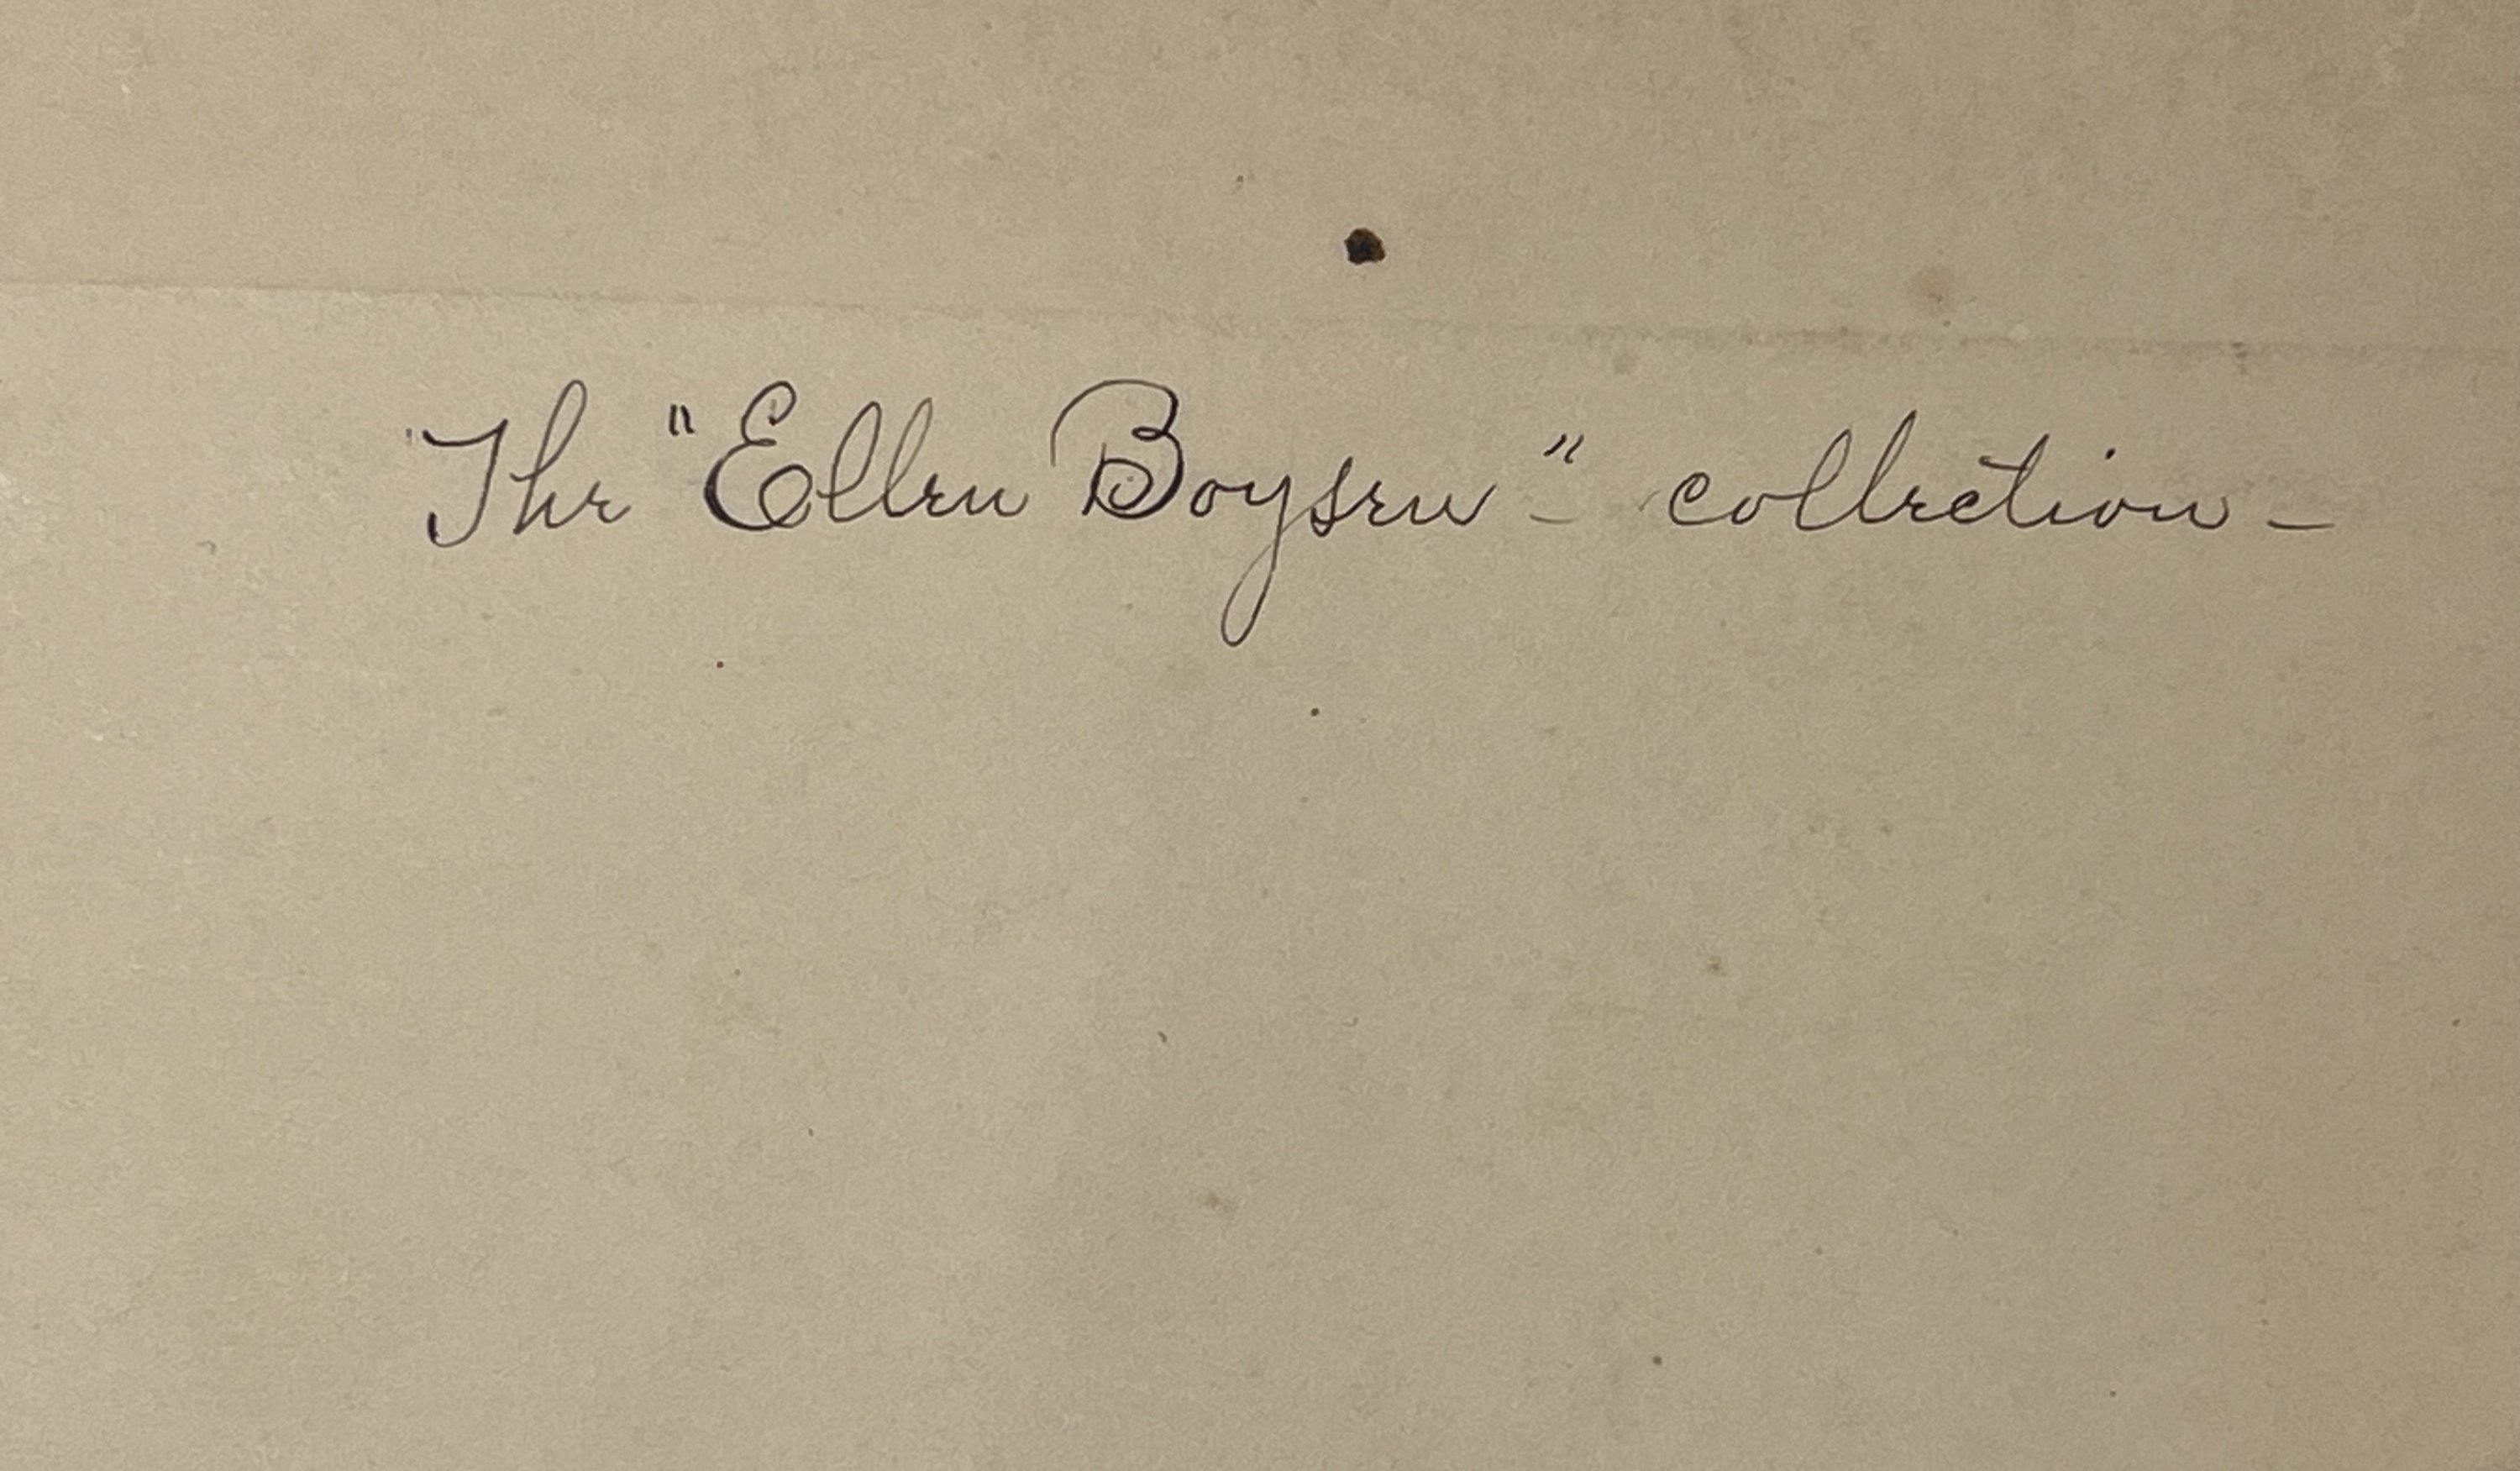 The "Ellen Boysen" - collection -